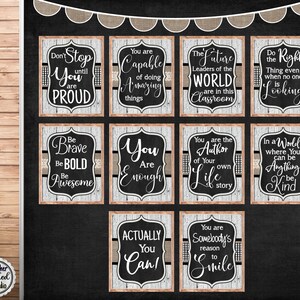 Don't Stop
until
You are
PROUD
You are
Capable
of doing
Amazing
things
The Future
Leaders of the
WORLD
are in this
Classroom
Do the
Right
Thing even
when no
one is
Looking
Be
Brave
Be BOLD
Be
Awesome
You
Are
Enough
You are the
Author
of Your
own
Life
story
In a World
where You
can be
Anything
be
Kind
ACTUALLY
You
Can!
You are
Somebody's
reason
to
Smile